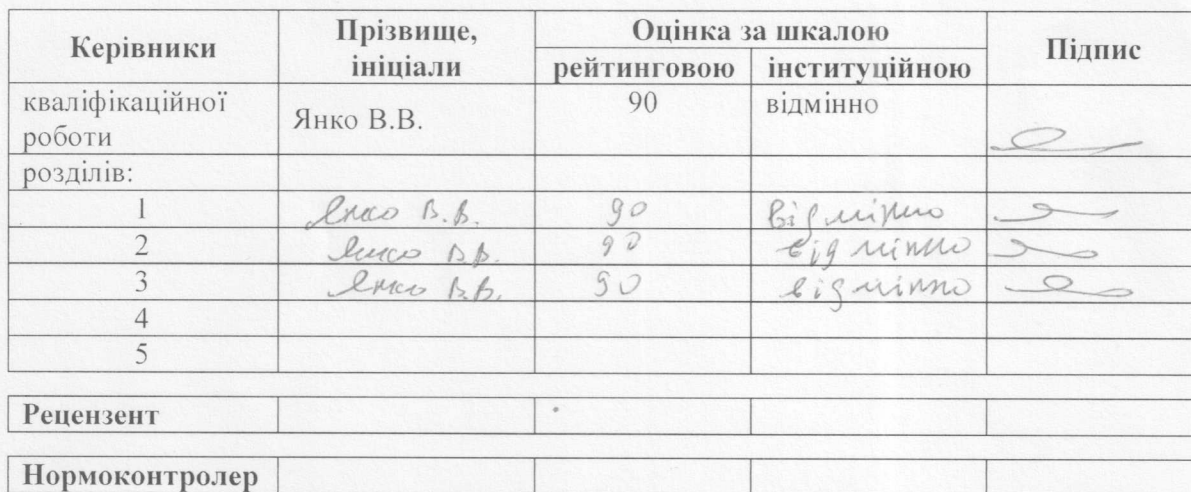 Керівники Прізвище, ініціали Оцінка за шкалою Підпис
рейтинговою інституційною
кваліфікаційної роботи Янко В.В. 90 відмінно
розділів:
1 Янко В.В. 90 відмінно
2 Янко В.В. 90 відмінно
3 Янко В.В. 90 відмінно
4
5
Рецензент
Нормоконтролер